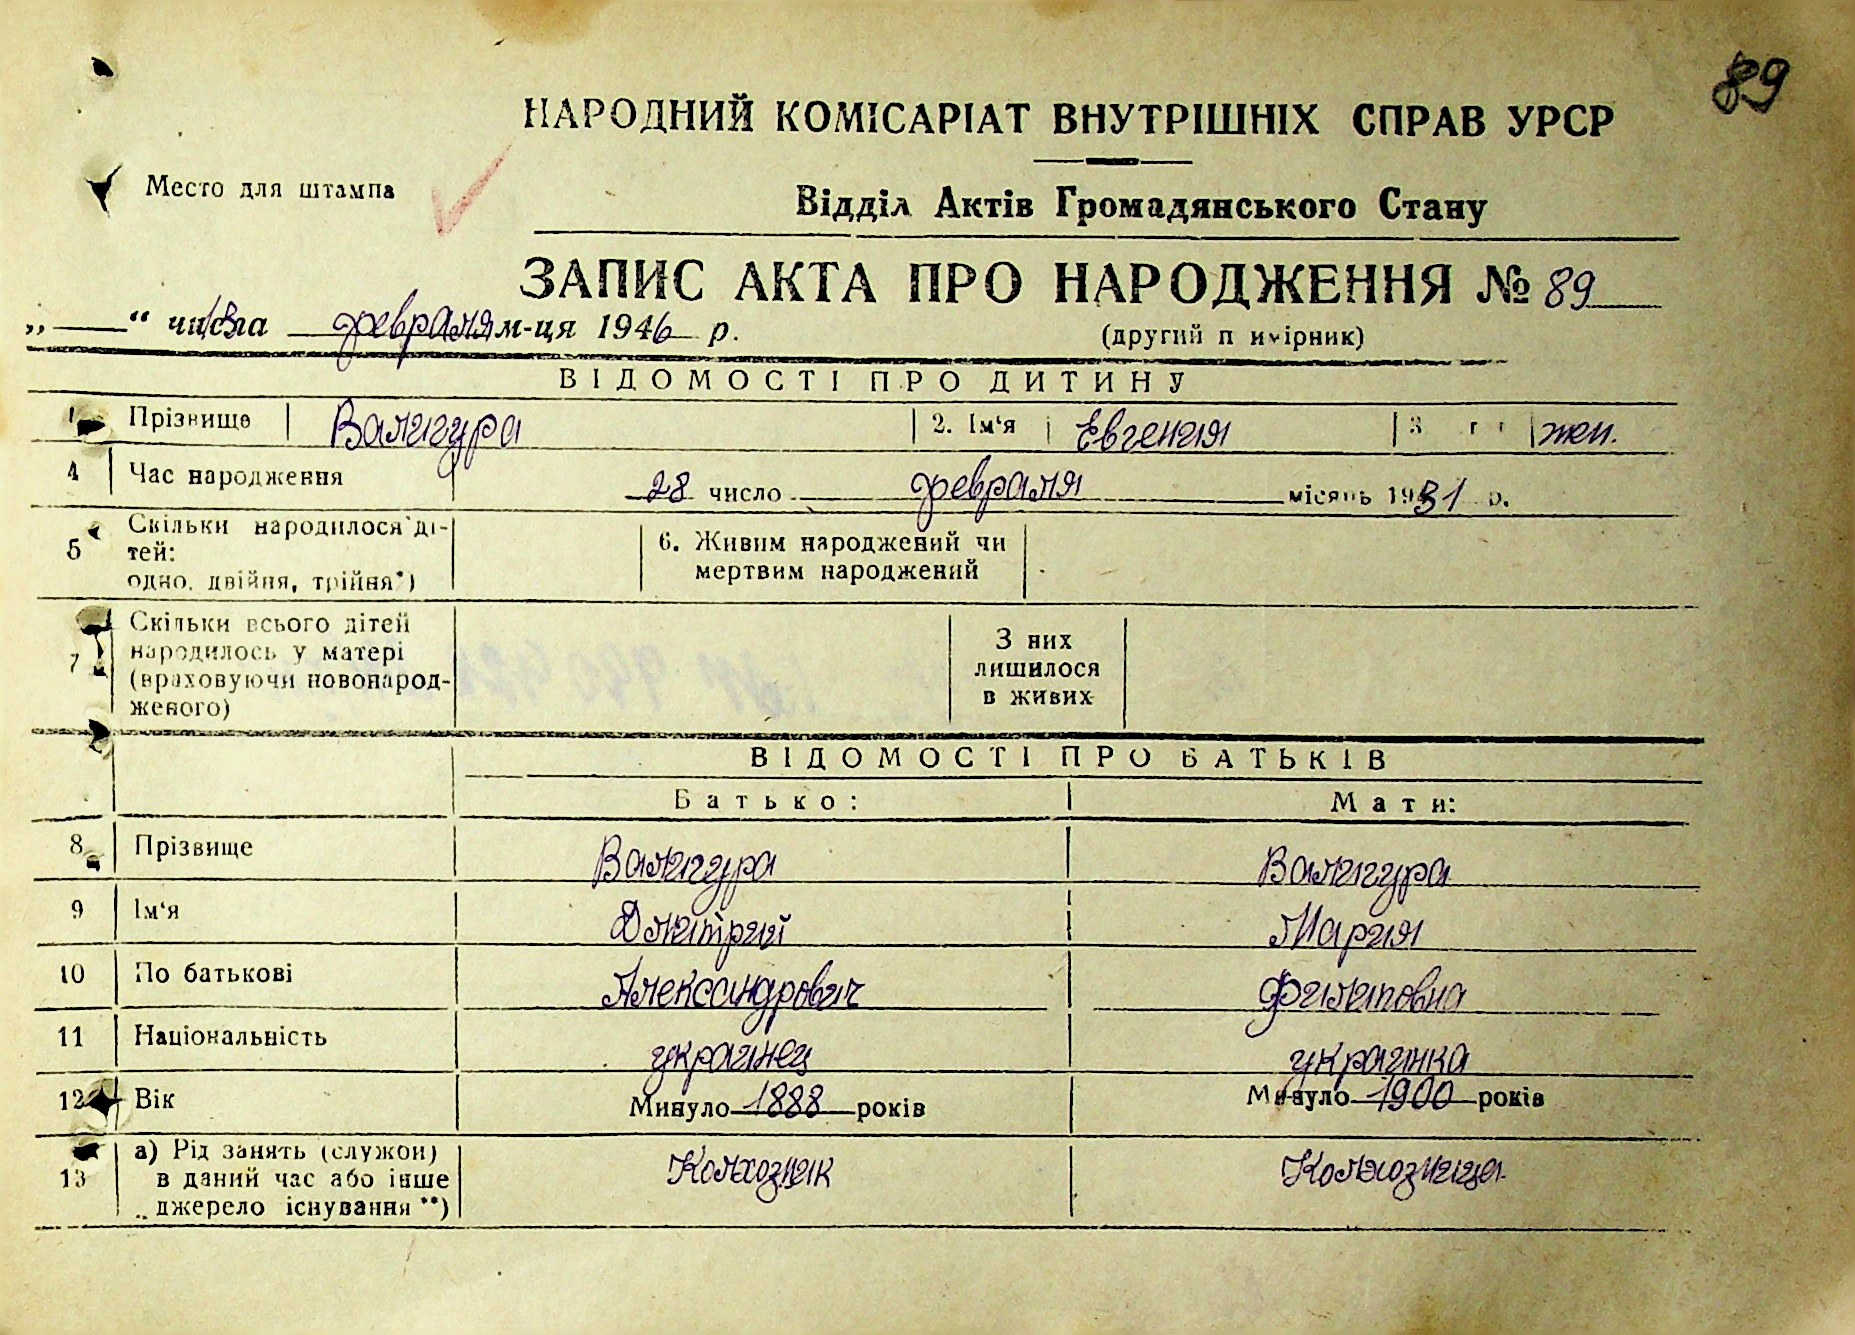 89
НАРОДНИЙ КОМІСАРІАТ ВНУТРІШНІХ СПРАВ УРСР
Место для штампа
Відділ Актів Громадянського Стану
ЗАПИС АКТА ПРО НАРОДЖЕННЯ № 89
„ “ числа февраля м-ця 1946 р.
(другий п имірник)
ВІДОМОСТІ ПРО ДИТИНУ
1 Прізвище Валигура 2. Ім‘я Евгения 3 жен.
4 Час народження 28 число февраля місяць 1931 р.
5 Скільки народилося ді-
тей:
одно, двійня, трійня*)
6. Живим народжений чи
мертвим народжений
7 Скільки всього дітей
народилось у матері
(враховуючи новонарод-
женого)
З них
лишилося
в живих
ВІДОМОСТІ ПРО БАТЬКІВ
Батько: Мати:
8 Прізвище Валигура Валигура
9 Ім‘я Дмитрий Мария
10 По батькові Александрович Филиповна
11 Національність украинец украинка
12 Вік Минуло 1888 років Минуло 1900 років
13 а) Рід занять (служби)
в даний час або інше
джерело існування **)
Колхозник Колхозница